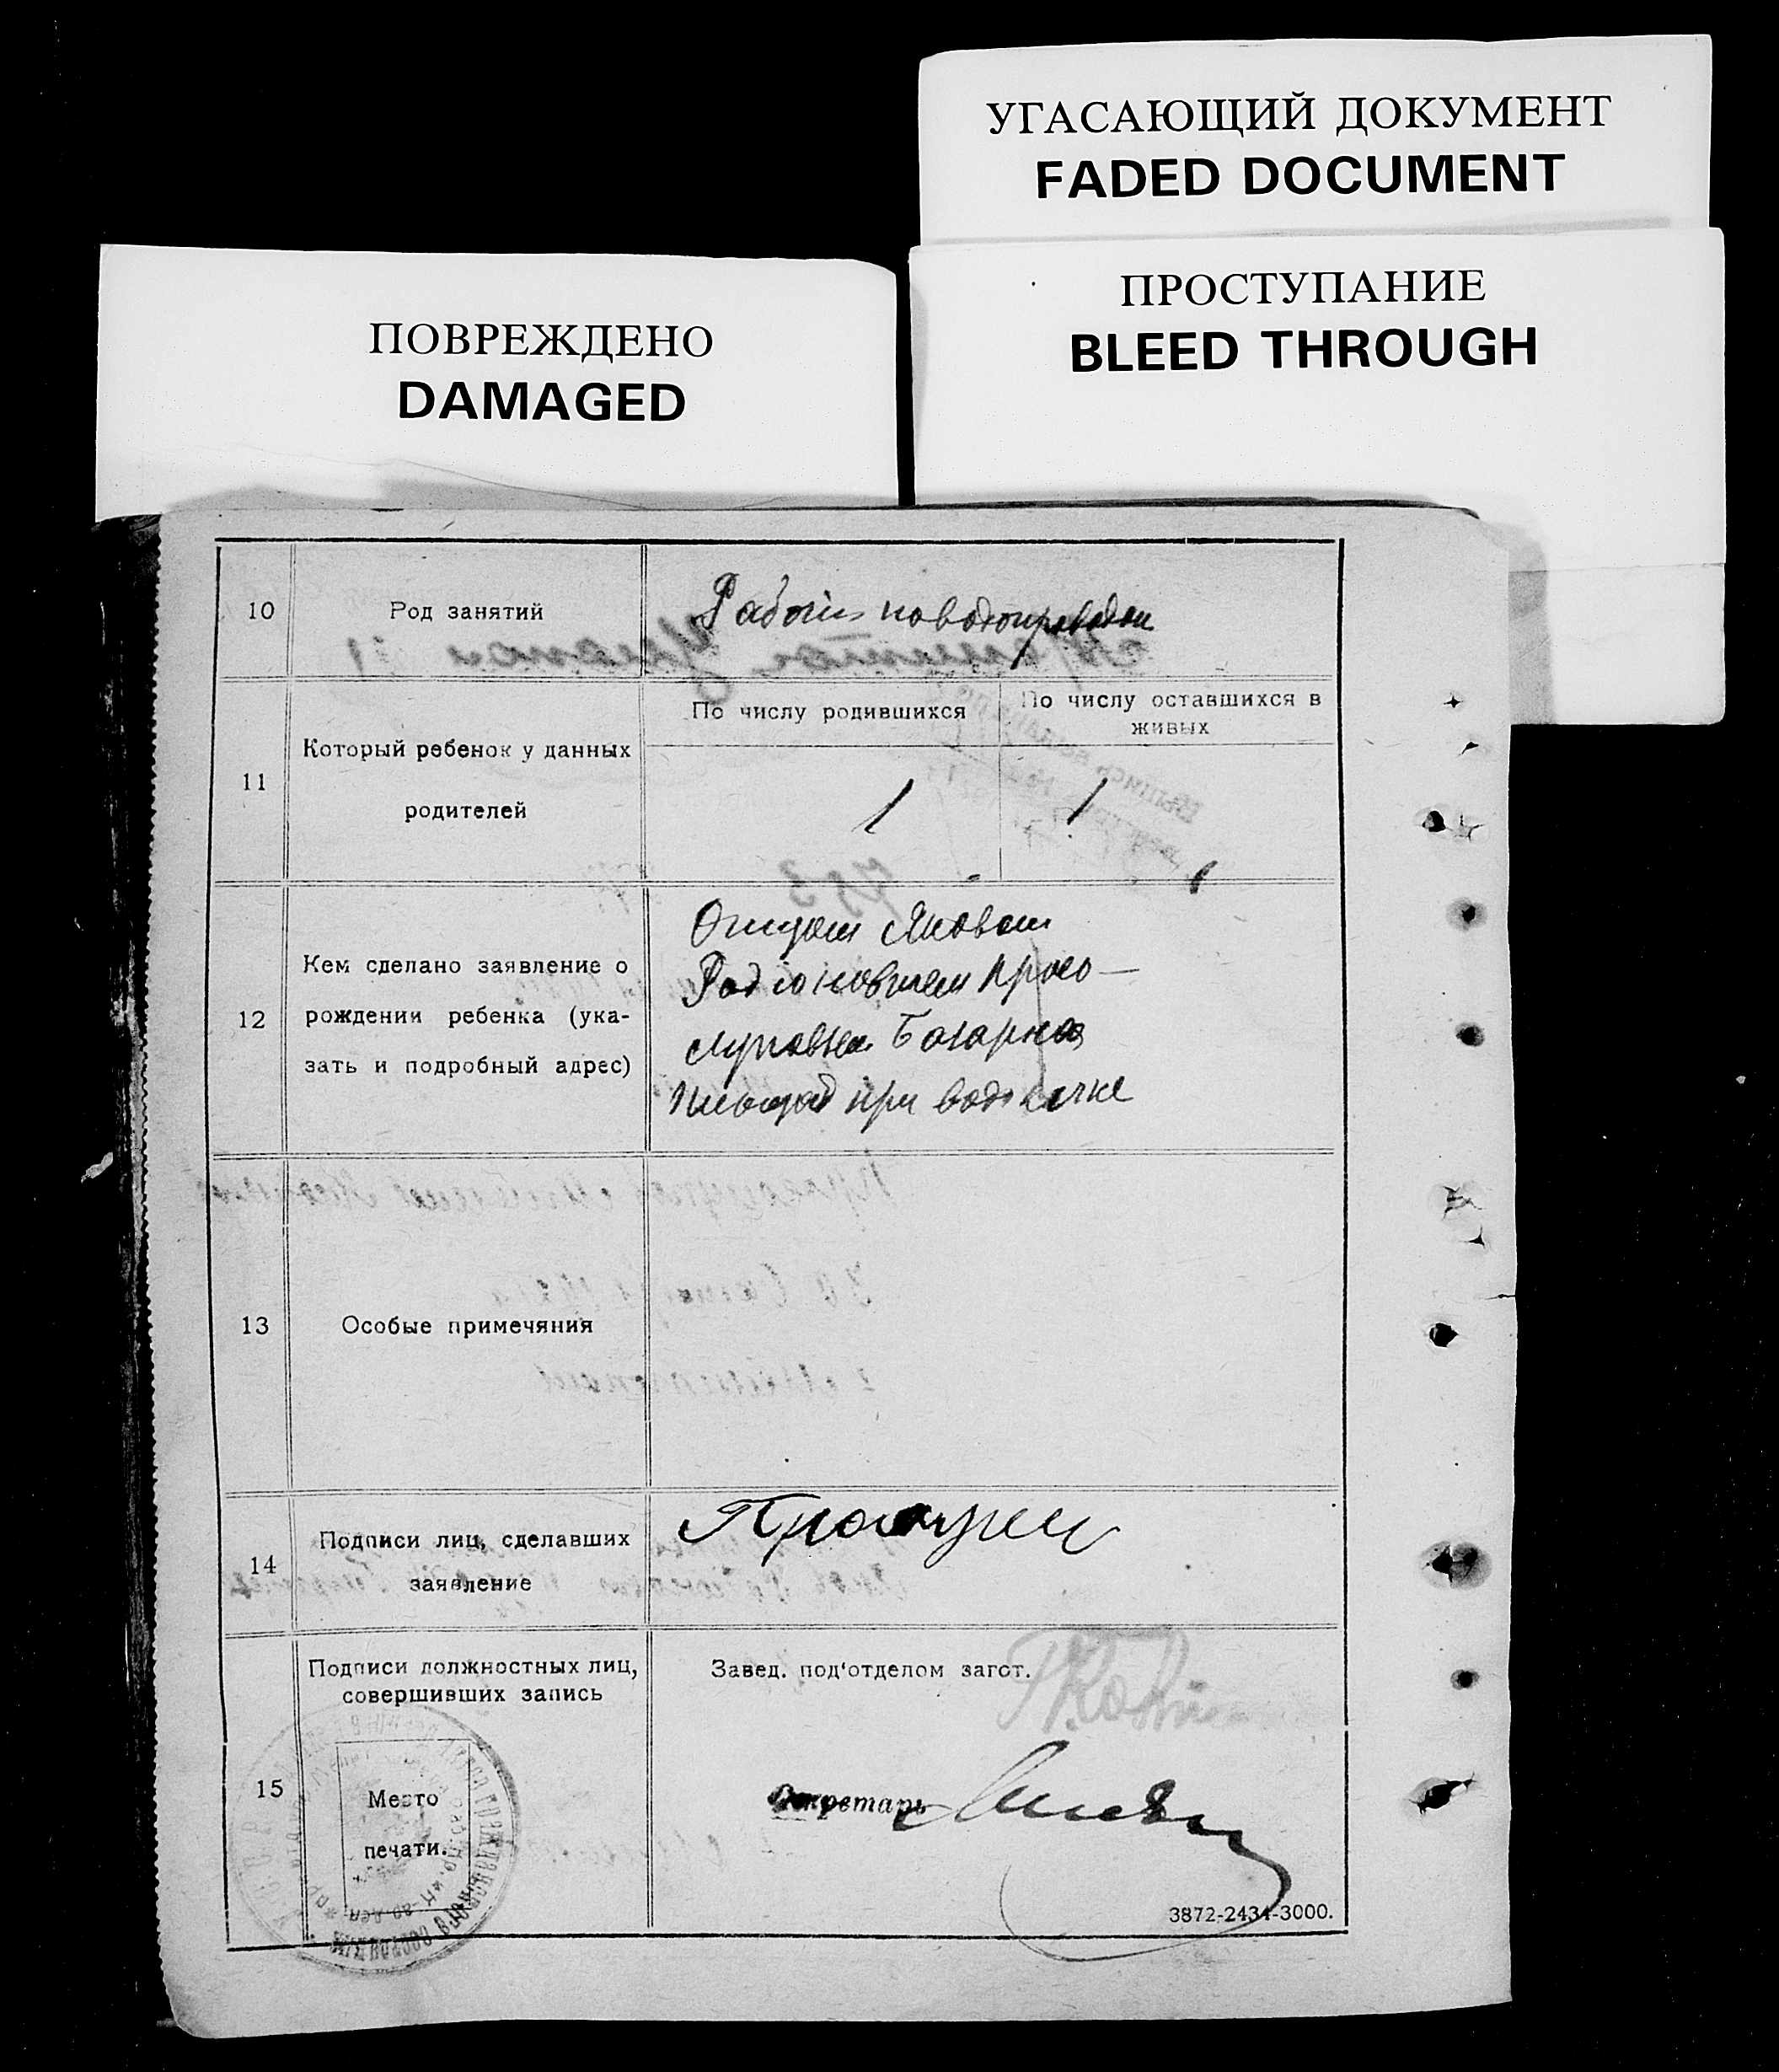 УГАСАЮЩИЙ ДОКУМЕНТ
FADED DOCUMENT
ПРОСТУПАНИЕ
BLEED THROUGH
ПОВРЕЖДЕНО
DAMAGED
10
Род занятий
Рабочий по водопроводом
11
Который ребенок у данных
родителей
По числу родившихся
По числу оставшихся в
живых
1
1
12
Кем сделано заявление о
рождении ребенка (ука-
зать и подробный адрес)
Отцом Яковом
Родионовичем
Базарная
площад при водокачке
13
Особые примечяния
14
Подписи лиц, сделавших
заявление
15
Подписи должностных лиц,
совершивших запись
Место
печати.
Завед. под‘отделом загст.
Секретарь
3872-2434-3000.